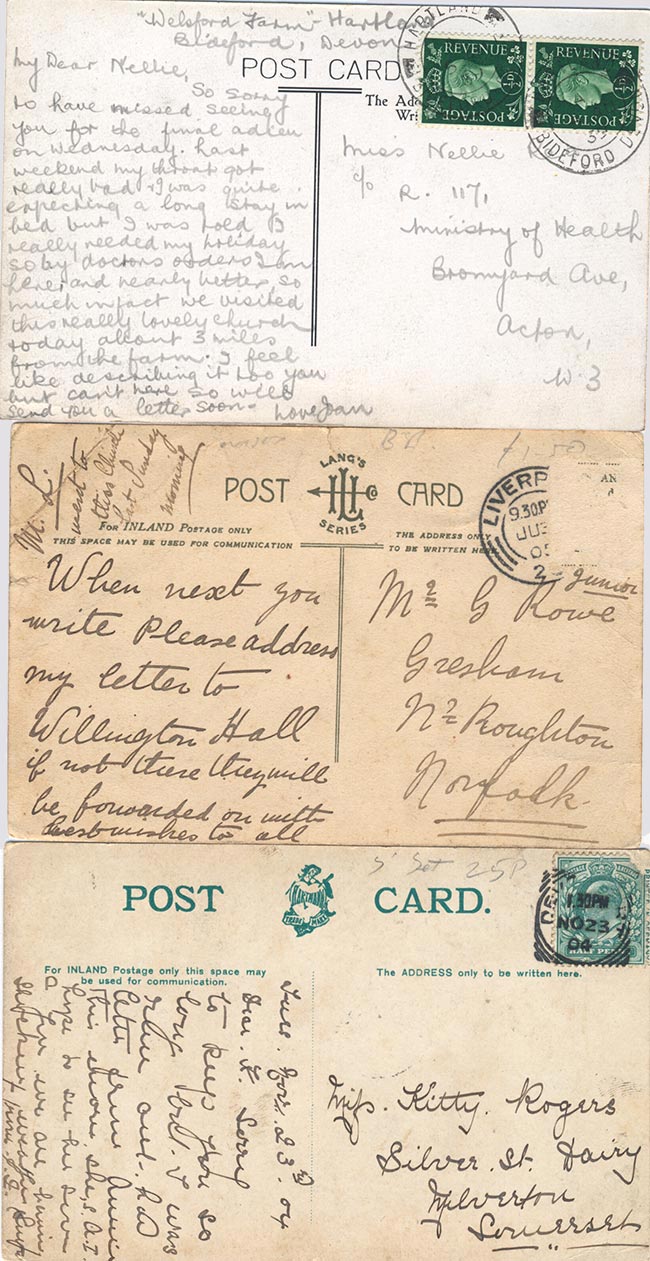 "Welsford Farm" - Hartland
Bideford, Devon
My Dear Nellie,
So sorry
to have missed seeing
you for the final adieu
on Wednesday. Last
weekend my throat got
really bad & I was quite
expecting a long stay in
bed but I was told I
really needed my holiday
so by doctors orders I am
here and nearly better, so
much infact we visited
this really lovely church
today about 3 miles
from the farm. I feel
like describing it too you
but can't here so will
send you a letter soon -
Love Joan
POST CARD
The Add
Wri
HARTLAND
BIDEFORD DEVON
REVENUE
REVENUE
½D
½D
POSTAGE
POSTAGE
Miss Nellie R
c/o R. 117,
Ministry of Health
Bromyard Ave,
Acton,
W.3
Mr
went to
Church
last Sunday
morning
B.B.
£1.50
POST CARD
LANG'S
SERIES
FOR INLAND POSTAGE ONLY
THIS SPACE MAY BE USED FOR COMMUNICATION
THE ADDRESS ONLY
TO BE WRITTEN HERE
LIVERP
9.30P
JU
05
2
AN
When next you
write Please address
my letter to
Willington Hall
if not there they will
be forwarded on with
best wishes to all
Junior
Mr G Rowe
Gresham
Nr Roughton
Norfolk.
5' Set 25P
POST CARD.
HARTMANN
TRADE MARK
1.30PM
NO 23
04
HALF PENNY
For INLAND Postage only this space may
be used for communication.
The ADDRESS only to be written here.
Tues. Nov. 23rd 04
Dear F. Sorry
to keep you so
long but I was
run out. had
letter from Annie
this morn, she's A.I.
hope to see her soon
we are having
weather
Miss. Kitty. Rogers
Silver. St. Dairy
Milverton
Somerset